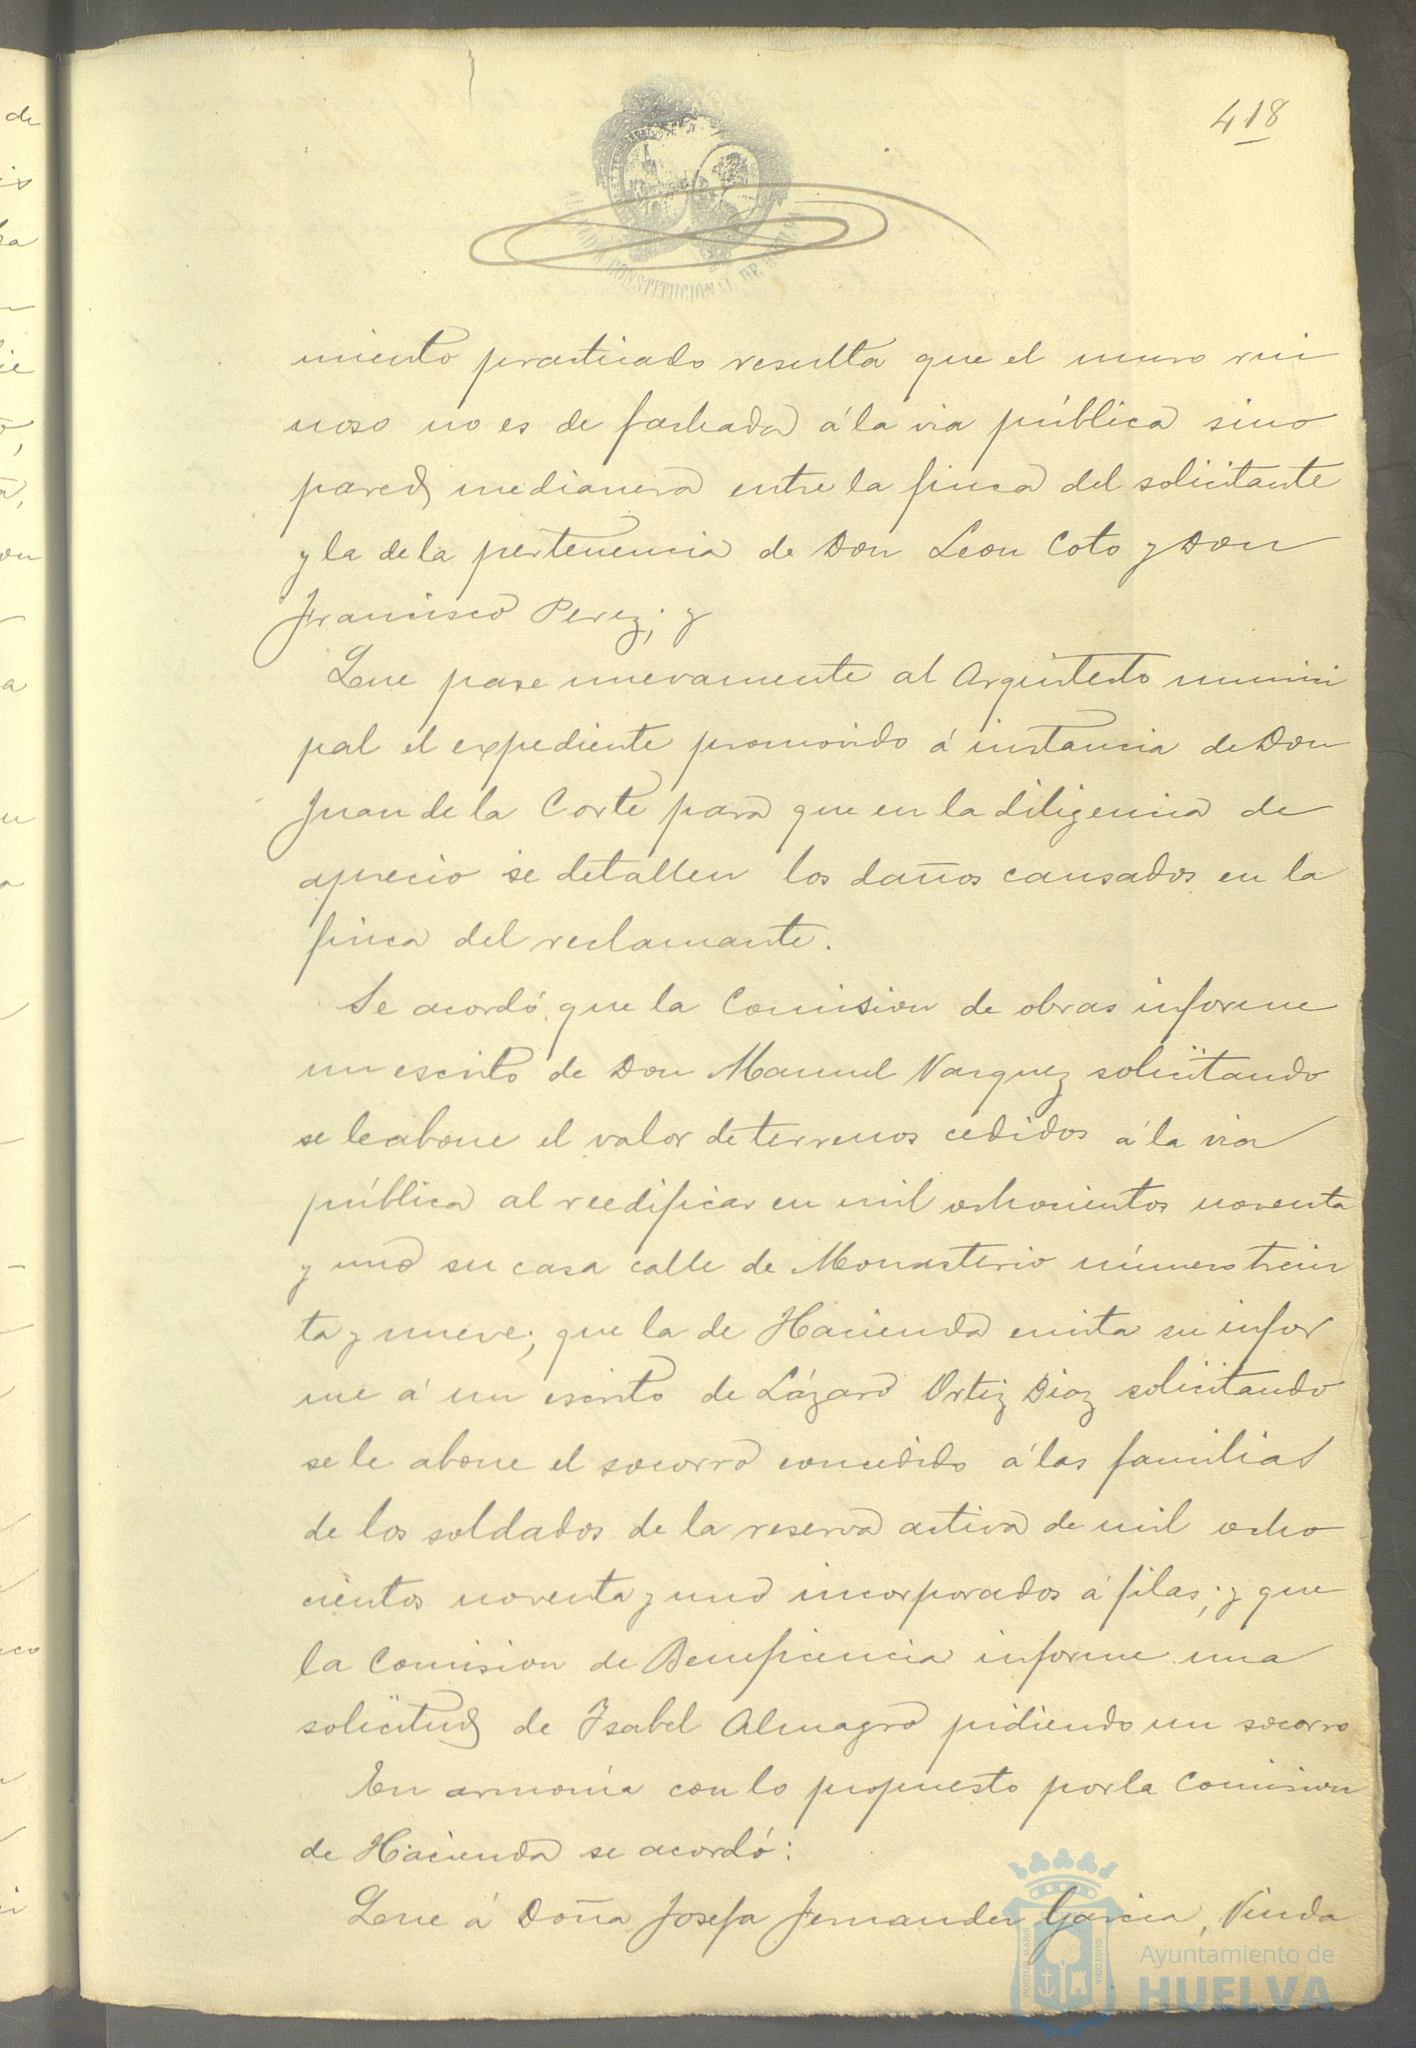 418
CONSTITUCIONAL DE
miento practicado resulta que el muro rui
noso no es de fachada á la via pública sino
pared medianera entre la finca del solicitante
y la de la pertenencia de Don Leon Coto y Don
Francisco Perez; y
Que pase nuevamente al Arquitecto munici
pal el expediente promovido á instancia de Don
Juan de la Corte para que en la diligencia de
aprecio se detallen los daños causados en la
finca del reclamante.
Se acordó que la Comision de obras informe
un escrito de Don Manuel Vazquez solicitando
se le abone el valor de terrenos cedidos á la via
pública al reedificar en mil ochocientos noventa
y uno su casa calle de Monasterio número trein
ta y nueve; que la de Hacienda emita su infor
me á un escrito de Lázaro Ortiz Diaz solicitando
se le abone el socorro concedido á las familias
de los soldados de la reserva activa de mil ocho
cientos noventa y uno incorporados á filas; y que
la Comision de Beneficencia informe una
solicitud de Isabel Almagro pidiendo un socorro
En armonía con lo propuesto por la Comision
de Hacienda se acordó:
Que á Doña Josefa Fernandez Garcia, Viuda
PORTUS MARIS
CUSTODIA
Ayuntamiento de
HUELVA